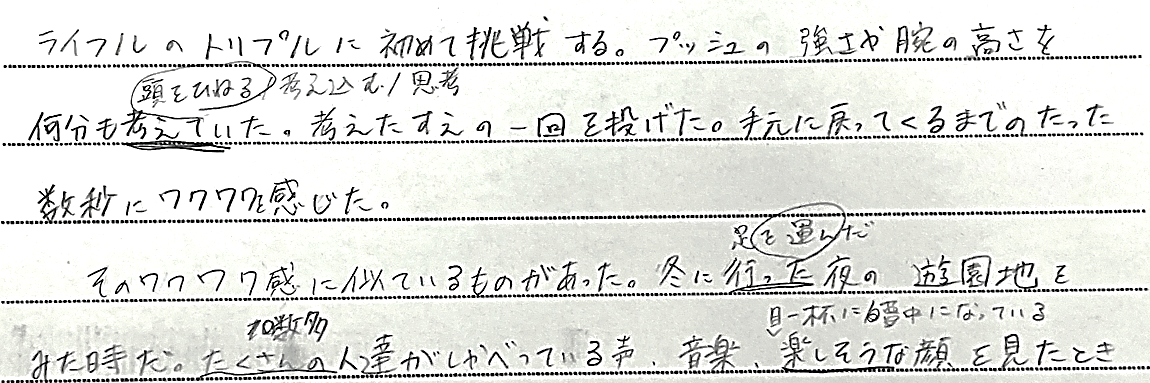 ライフルのトリプルに初めて挑戦する。プッシュの強さや腕の高さを
頭をひねる/考え込む/思考
何分も考えていた。考えたすえの一回を投げた。手元に戻ってくるまでのたった
数秒にワクワクを感じた。
足を運んだ
そのワクワク感に似ているものがあった。冬に行った夜の遊園地を
数多 目一杯に夢中になっている
みた時だ。たくさんの人達がしゃべっている声、音楽、楽しそうな顔を見たとき